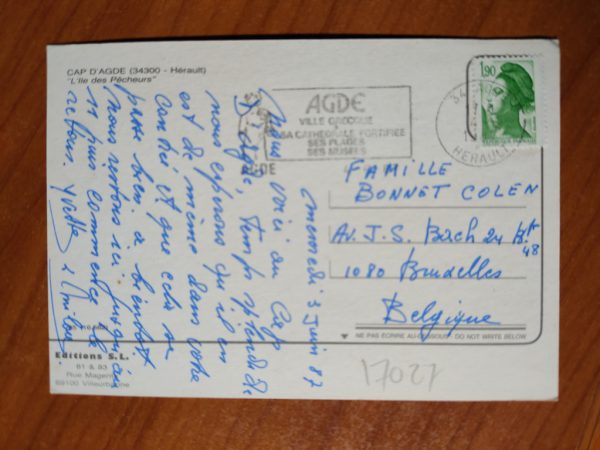 CAP D'AGDE (34300 - Hérault)
"L'Ile des Pêcheurs"
mercredi 3 Juin 87
Nous voici au Cap
D'Agde, temps splendide
nous espérons qu'il en
est de même dans votre
contrée et que cela se
passe bien à bientôt.
nous restons ici jusqu'au
11 puis commence le
retour. Yvette
AGDE
VILLE GRECQUE
SA CATHEDRALE FORTIFIEE
SES PLAGES
SES MUSEES
AGDE
34
HERAULT
1,90
FAMILLE
BONNET COLEN
Av. J.S. Bach 24 Bt 48
1080 Bruxelles
Belgique
NE PAS ECRIRE AU-DESSOUS DO NOT WRITE BELOW
Editions S.L.
81 & 83
Rue Magenta
69100 Villeurbanne
17027